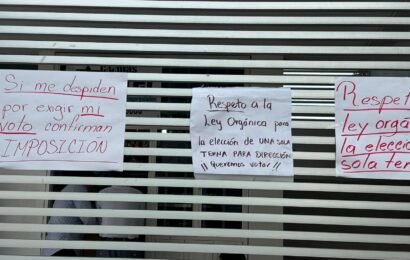 Si me despiden
por exigir mi
voto confirman
IMPOSICION
Respeto a la
Ley Orgánica para
la elección de UNA SOLA
TERNA PARA DIRECCIÓN
¡¡ Queremos votar !!
Respet
ley orgá
la elecci
sola ter